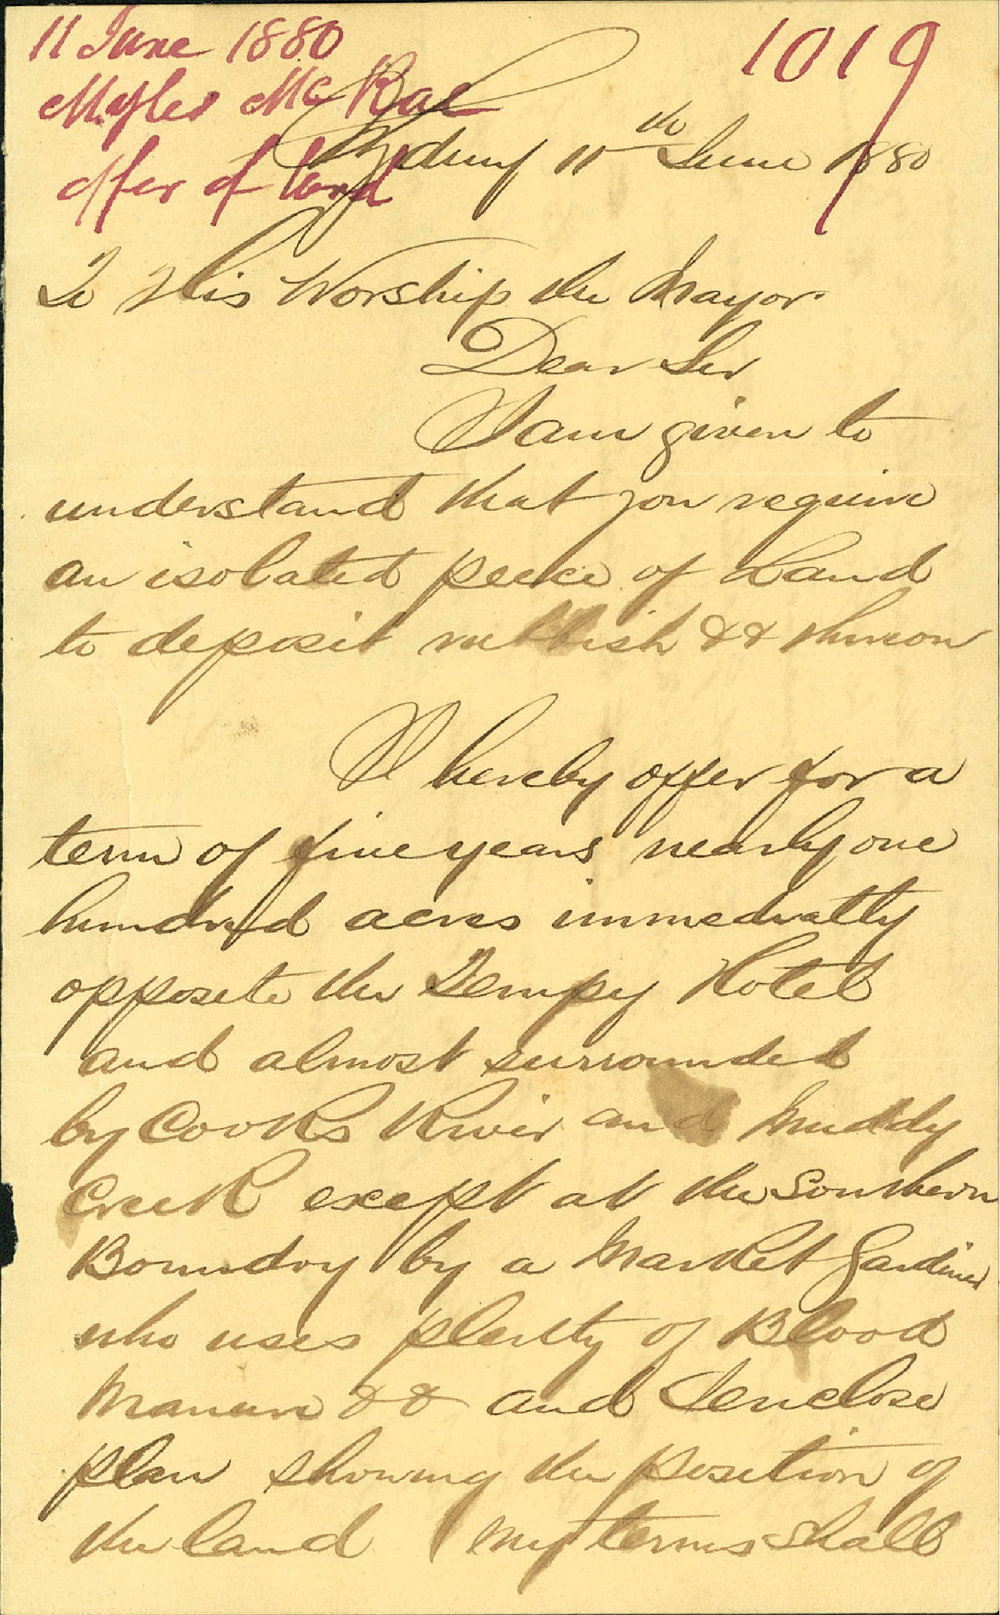 11 June 1880
1019
Myles McRae
offer of land
Sydney 11th June 1880
To His Worship the Mayor.
Dear Sir
I am given to
understand that you require
an isolated peece of Land
to deposit rubbish && thereon
I hereby offer for a
term of five years nearly one
hundred acres immediatly
opposite the Tempy Hotel
and almost surrounded
by Cooks River and Muddy
Creek except at the Southern
Boundry by a Market Gardiner
who uses plenty of Blood
Manure && and I enclose
plan showing the position of
the land my terms shall